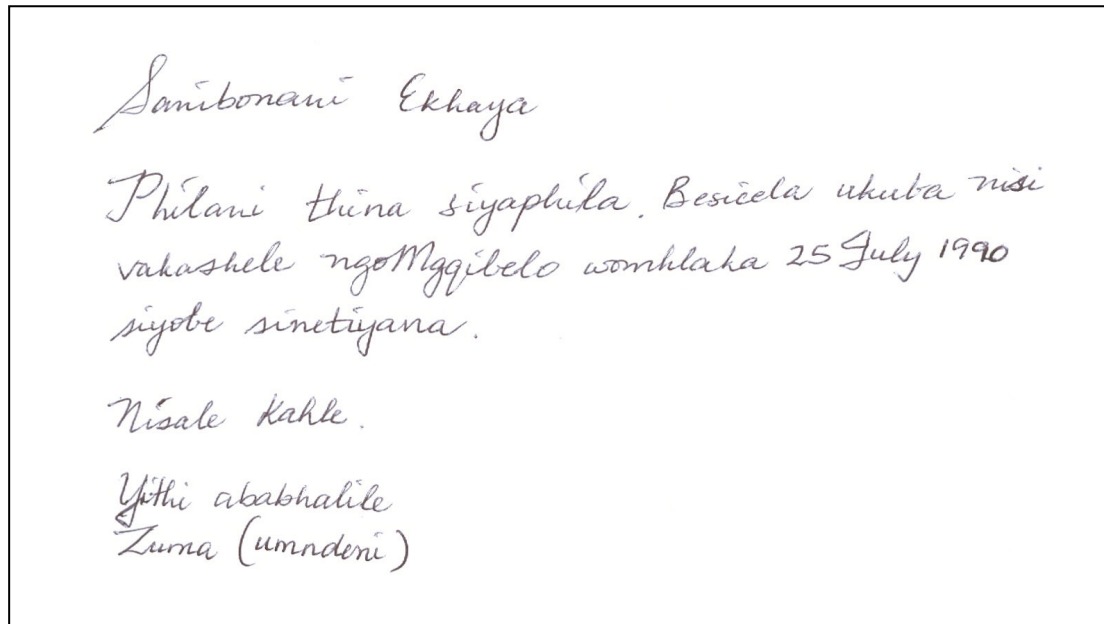 Sanibonani Ekhaya
Philani thina siyaphila. Besicela ukuba nisi
vakashele ngoMgqibelo womhlaka 25 July 1990
siyobe sinetiyana.
Nisale Kahle.
Yithi ababhalile
Zuma (umndeni)